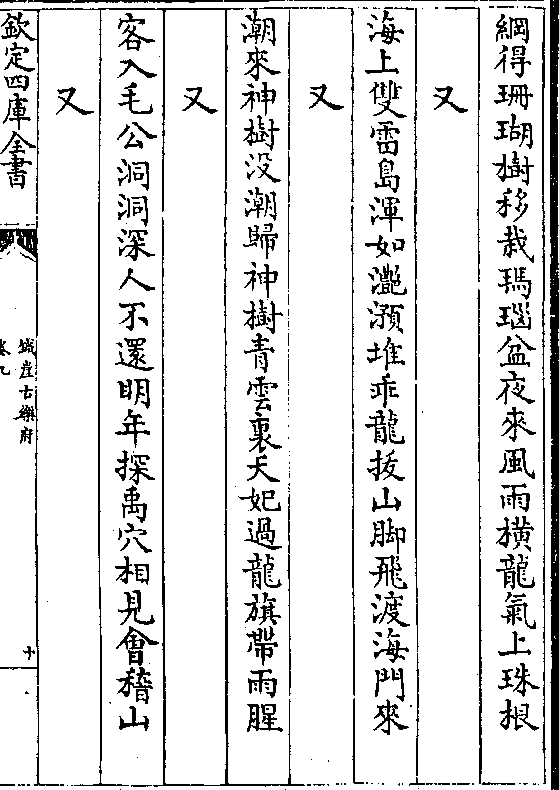 網得珊瑚樹移栽瑪瑙盆夜來風雨横龍氣上珠根
又
海上雙雷島渾如灔澦堆乖龍拔山脚飛渡海門來
又
潮來神樹没潮歸神樹青雲裏天妃過龍旗帶雨腥
又
客入毛公洞洞深人不還明年探禹穴相見會稽山
又
欽定四庫全書
鐵崖古樂府
卷九
十